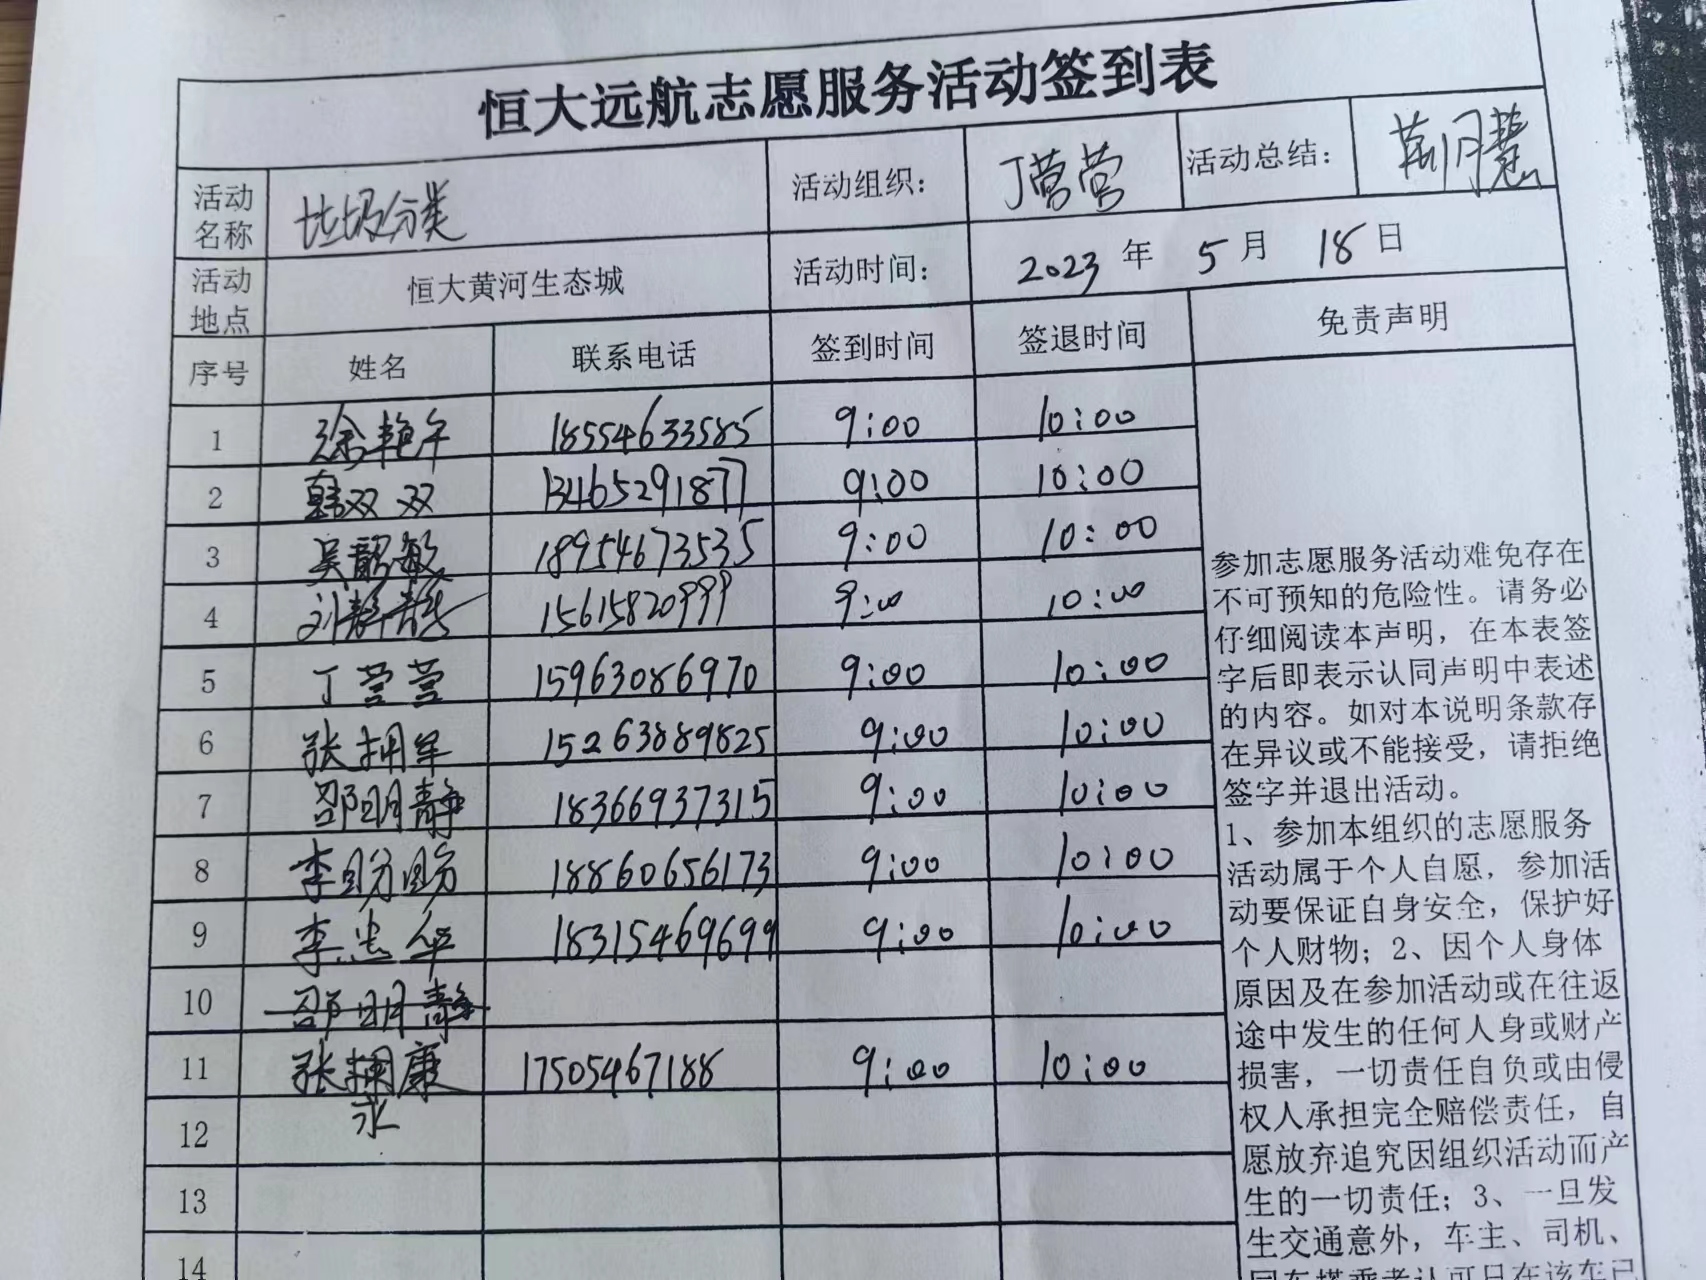 恒大远航志愿服务活动签到表
活动名称 垃圾分类 活动组织： 丁莹莹 活动总结： 靳月慧
活动地点 恒大黄河生态城 活动时间： 2023 年 5 月 18 日
序号 姓名 联系电话 签到时间 签退时间 免责声明
1 徐艳午 18554633585 9:00 10:00
2 韩双双 13465291877 9:00 10:00
3 吴韶敏 18954673535 9:00 10:00
4 刘静 15615820999 9:00 10:00
5 丁莹莹 15963086970 9:00 10:00
6 张拥军 15263889825 9:00 10:00
7 邵明静 18366937315 9:00 10:00
8 李盼盼 18860656173 9:00 10:00
9 李忠华 18315469699 9:00 10:00
10 邵明静
11 张拥康 17505467188 9:00 10:00
永
12
13
14
参加志愿服务活动难免存在
不可预知的危险性。请务必
仔细阅读本声明，在本表签
字后即表示认同声明中表述
的内容。如对本说明条款存
在异议或不能接受，请拒绝
签字并退出活动。
1、参加本组织的志愿服务
活动属于个人自愿，参加活
动要保证自身安全，保护好
个人财物；2、因个人身体
原因及在参加活动或在往返
途中发生的任何人身或财产
损害，一切责任自负或由侵
权人承担完全赔偿责任，自
愿放弃追究因组织活动而产
生的一切责任；3、一旦发
生交通意外，车主、司机、
同车搭乘者认可只在该车已